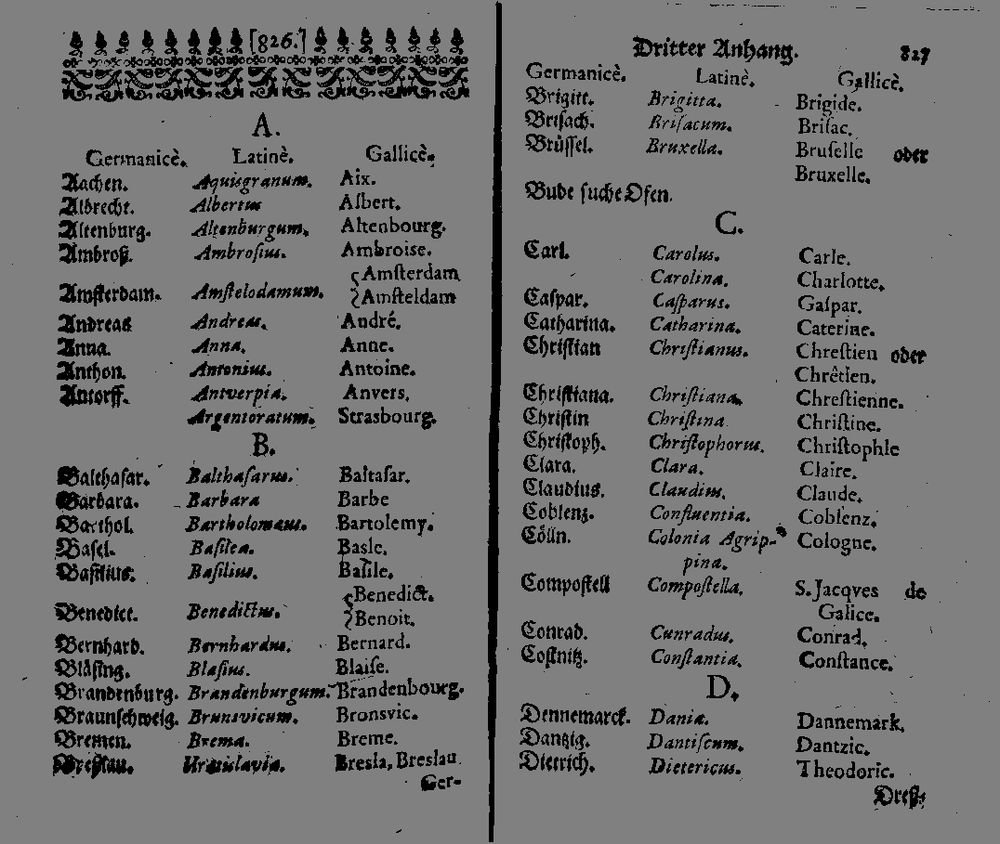 [826.]
A.
Germanicè. Latinè. Gallicè.
Aachen. Aquisgranum. Aix.
Albrecht. Albertus Albert.
Altenburg. Altenburgum. Altenbourg.
Ambroſ. Ambroſius. Ambroise.
Amſterdam. Amſtelodamum. {Amſterdam
{Amſteldam
Andreas Andreas. André.
Anna. Anna. Anne.
Anthon. Antonius. Antoine.
Antorff. Antverpia. Anvers.
Argentoratum. Strasbourg.
B.
Balthaſar. Balthaſarus. Baltaſar.
Barbara. Barbara Barbe
Barthol. Bartholomæus. Bartolemy.
Baſel. Baſilea. Basle.
Baſilius. Baſilius. Baſile.
Benedict. Benedictus. {Benedict.
{Benoit.
Bernhard. Bernhardus. Bernard.
Bläſing. Blaſius. Blaiſe.
Brandenburg. Brandenburgum. Brandenbourg.
Braunſchweig. Brunsvicum. Bronsvic.
Bremen. Brema. Breme.
Breſlau. Uratislavia. Bresla, Breslau
Ger-
Dritter Anhang. 827
Germanicè. Latinè. Gallicè.
Brigitt. Brigitta. Brigide.
Briſach. Briſacum. Briſac.
Brüſſel. Bruxella. Bruſelle oder
Bruxelle.
Bude ſuche Ofen.
C.
Carl. Carolus. Carle.
Carolina. Charlotte.
Caſpar. Caſparus. Gaſpar.
Catharina. Catharina. Caterine.
Chriſtian Chriſtianus. Chreſtien oder
Chrêtien.
Chriſtiana. Chriſtiana. Chreſtienne.
Chriſtin Chriſtina Chriſtine.
Chriſtoph. Chriſtophorus. Chriſtophle
Clara. Clara. Claire.
Claudius. Claudius. Claude.
Coblenz. Confluentia. Coblenz.
Cölln. Colonia Agrip- Cologne.
pina.
Compoſtell Compoſtella. S. Jacqves de
Galice.
Conrad. Cunradus. Conrad.
Coſtnitz. Conſtantia. Conſtance.
D.
Dennemarck. Dania. Dannemark.
Dantzig. Dantiſcum. Dantzic.
Dietrich. Dietericus. Theodoric.
Dreß-